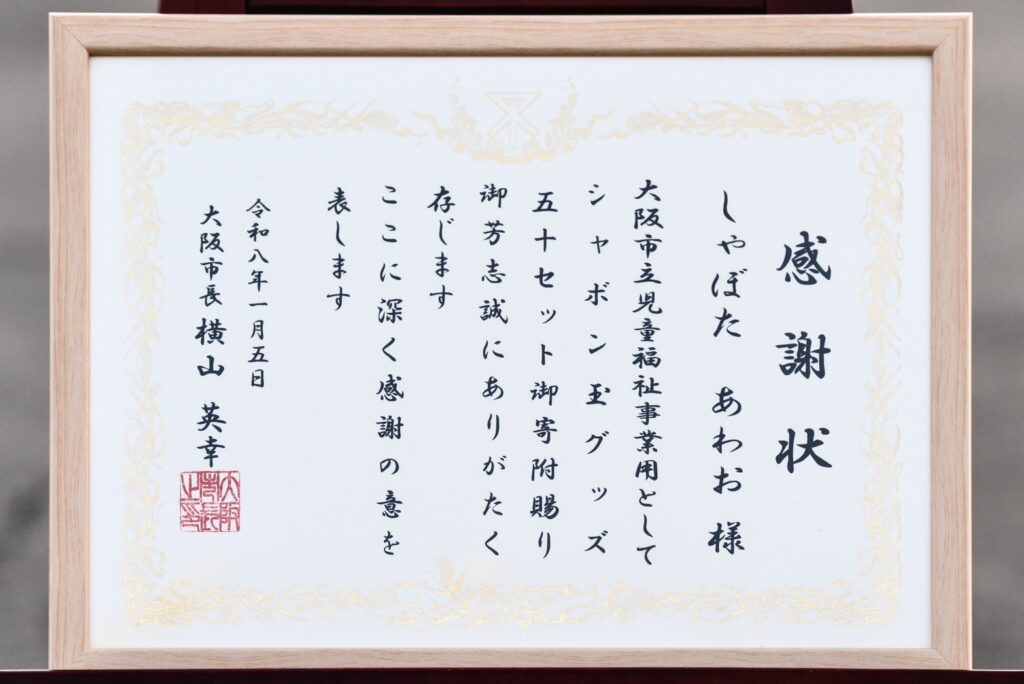 感謝状
しゃぼた あわお 様
大阪市立児童福祉事業用として
シャボン玉グッズ
五十セット御寄附賜り
御芳志誠にありがたく
存じます
ここに深く感謝の意を
表します
令和八年一月五日
大阪市長 横山 英幸
大阪市長之印